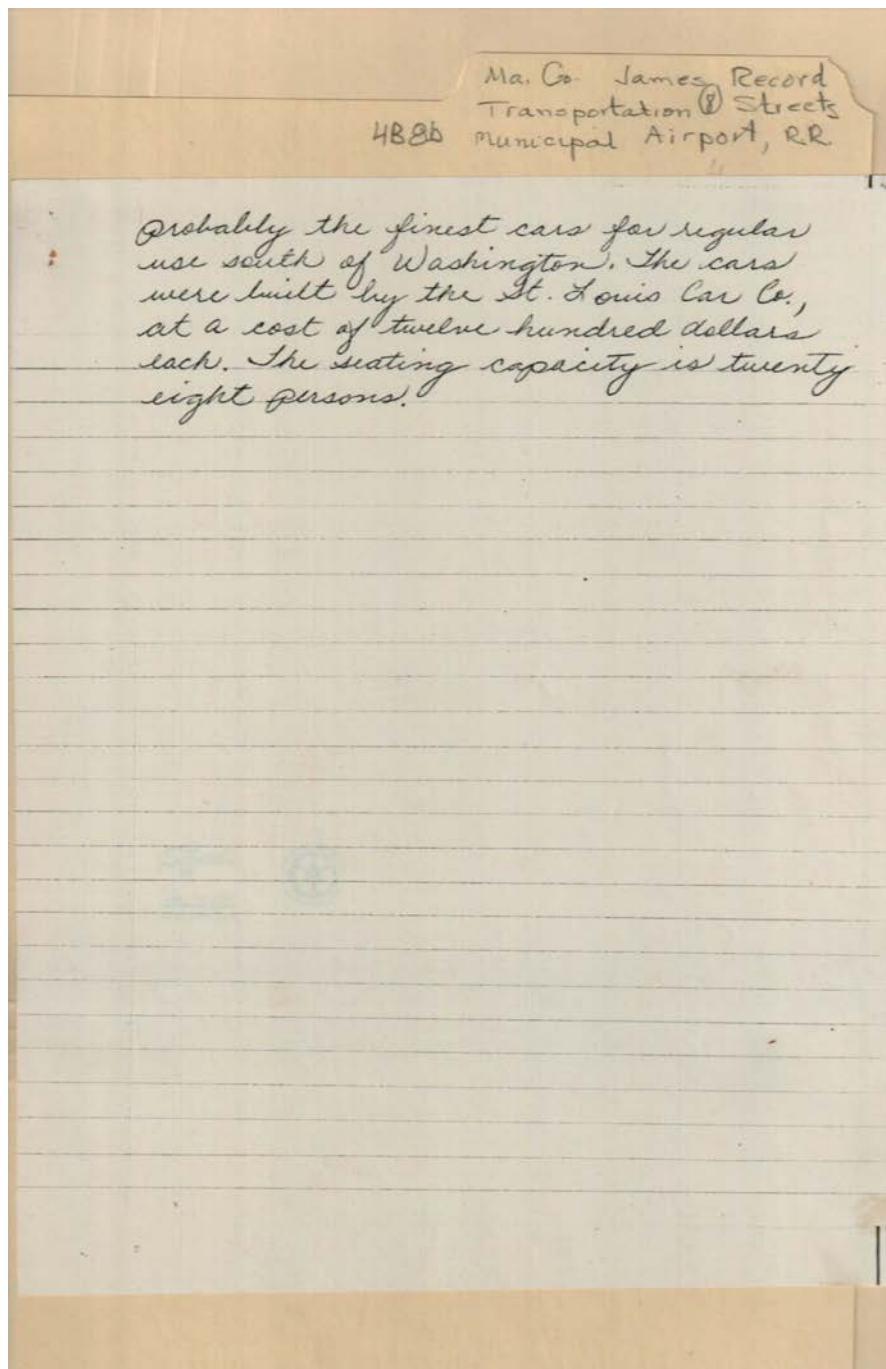 Ma. Co. James Record
Transportation & Streets
4B8b Municipal Airport, RR
probably the finest cars for regular
use south of Washington. The cars
were built by the St. Louis Car Co.,
at a cost of twelve hundred dollars
each. The seating capacity is twenty
eight persons.